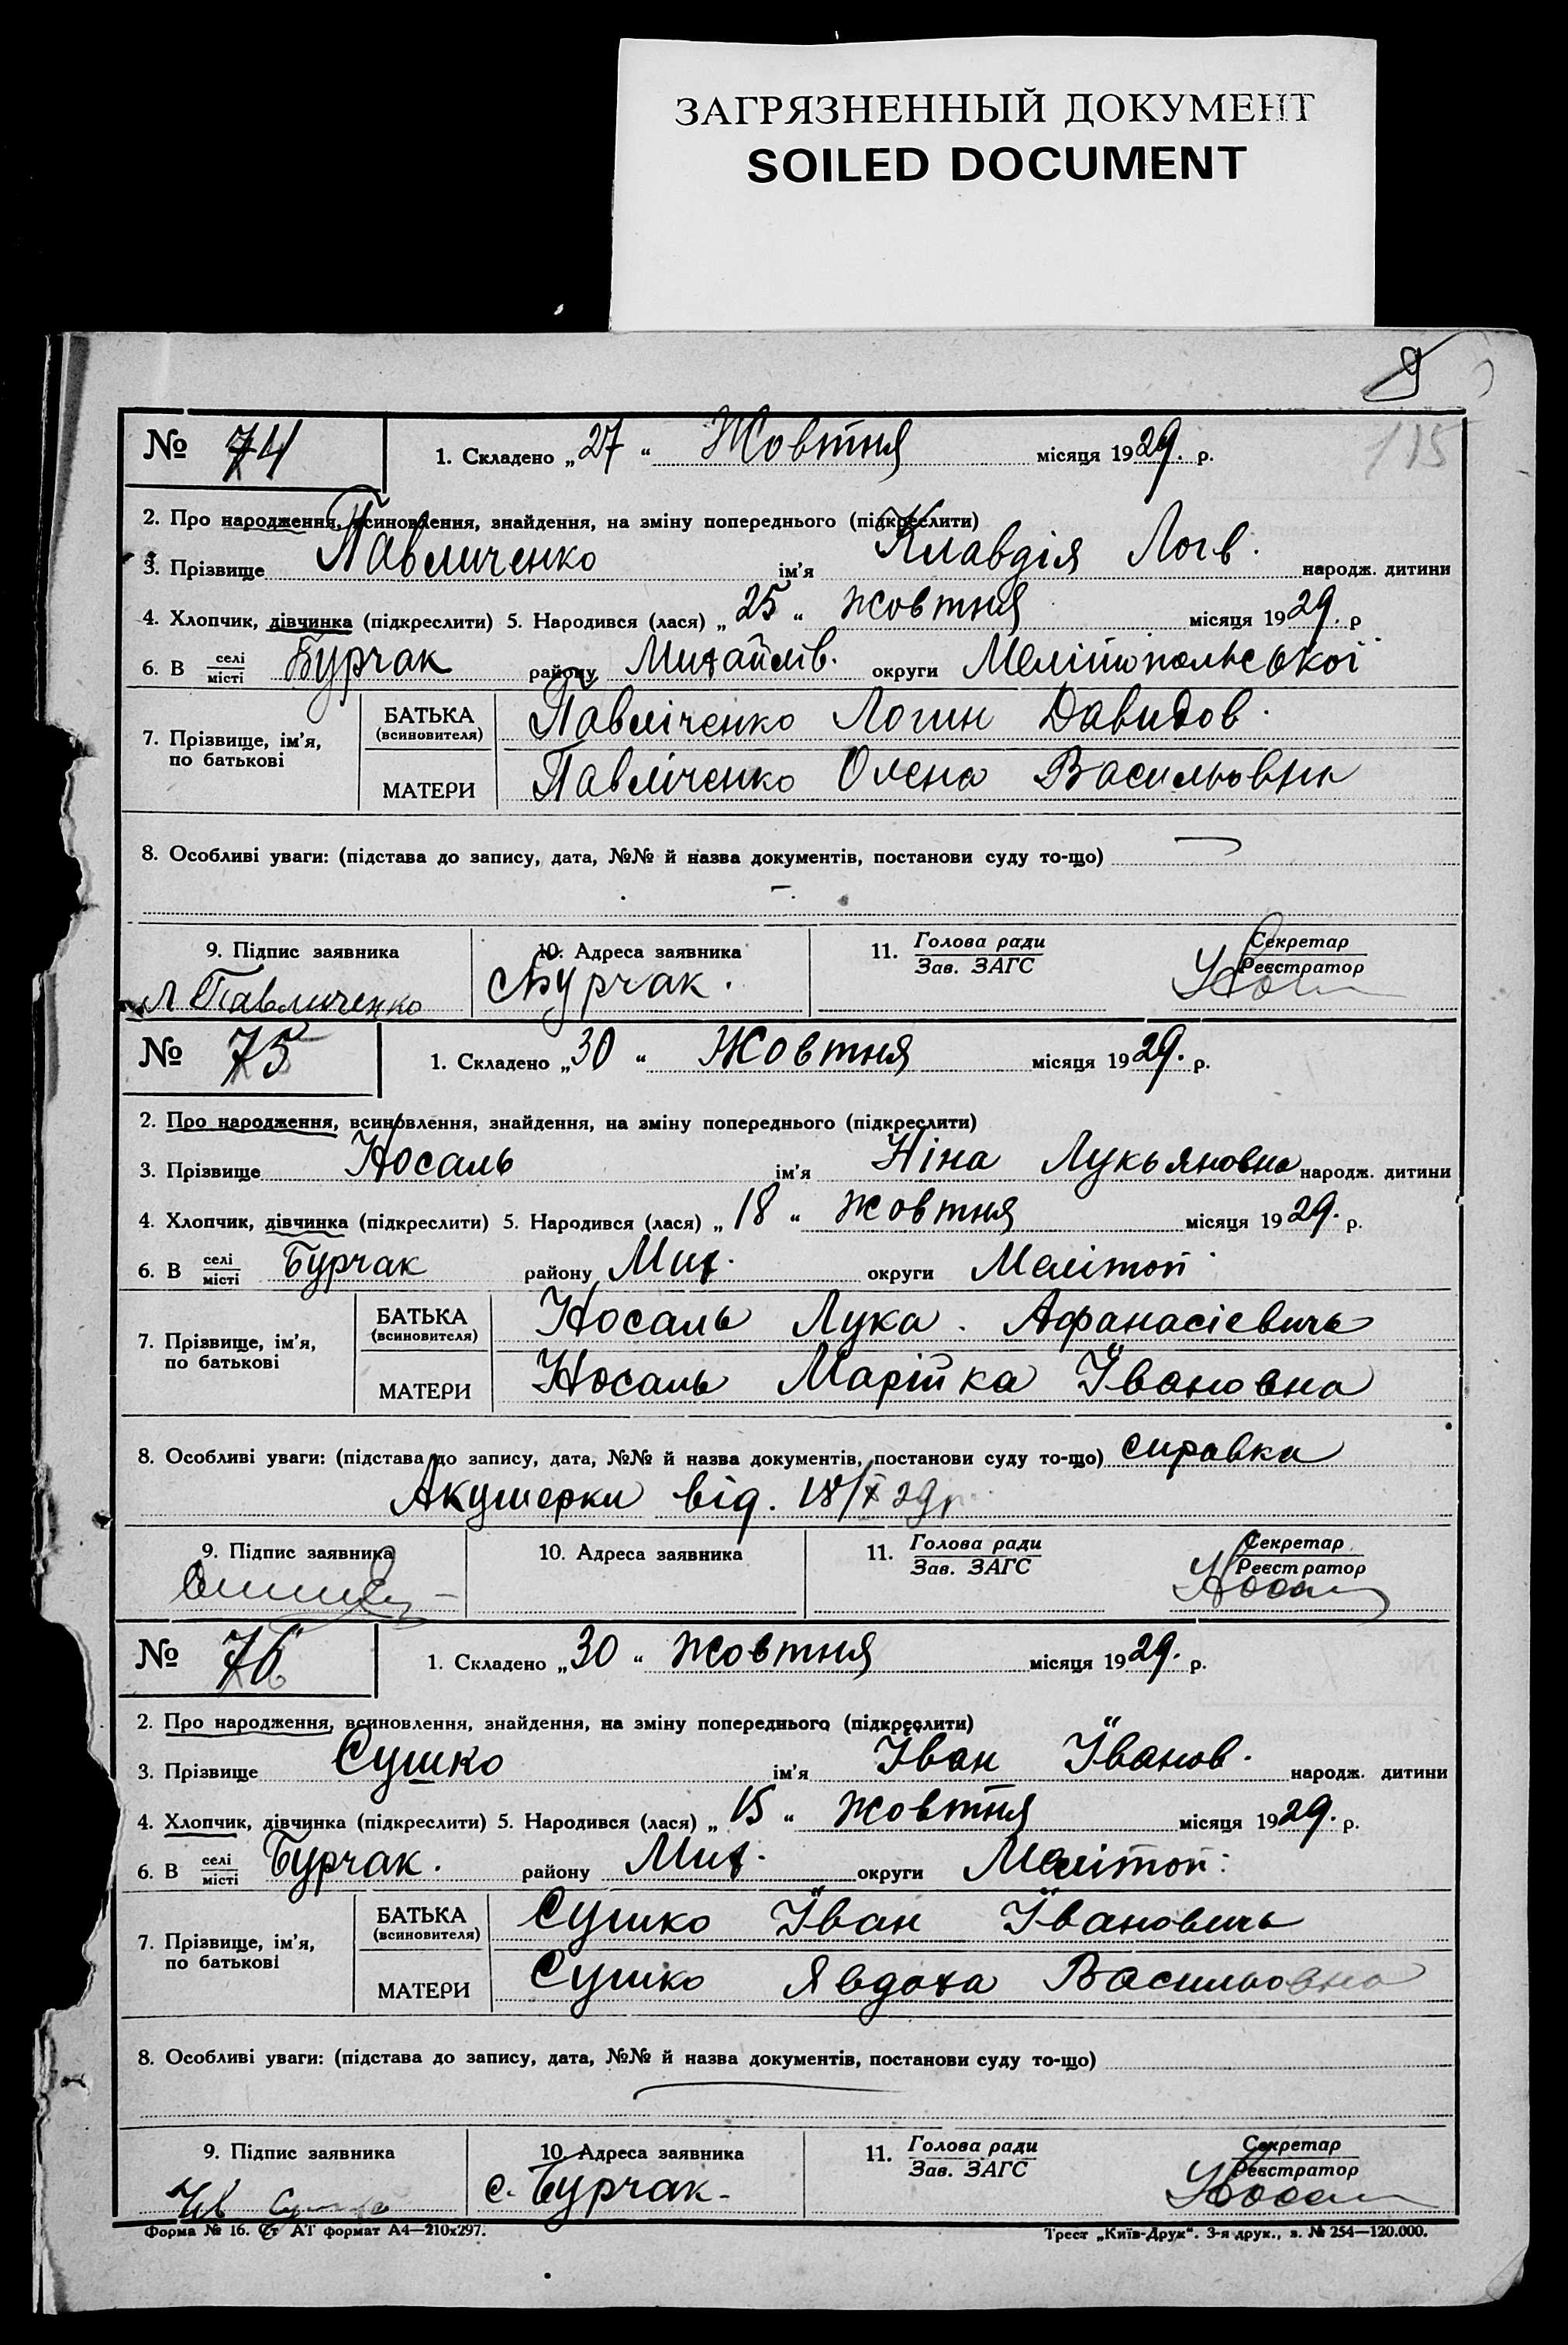 ЗАГРЯЗНЕННЫЙ ДОКУМЕНТ
SOILED DOCUMENT
9
115
№ 74
1. Складено „27“ Жовтня місяця 1929. р.
2. Про народження, всиновлення, знайдення, на зміну попереднього (підкреслити)
3. Прізвище Павличенко ім'я Клавдія Логв. народж. дитини
4. Хлопчик, дівчинка (підкреслити) 5. Народився (лася) „25“ жовтня місяця 1929. р
6. В селі/місті Бурчак району Михайлів. округи Мелітопольської
7. Прізвище, ім'я, по батькові
БАТЬКА (всиновителя) Павліченко Логин Давидов.
МАТЕРИ Павліченко Олена Васильовна
8. Особливі уваги: (підстава до запису, дата, №№ й назва документів, постанови суду то-що) —
9. Підпис заявника 10. Адреса заявника 11. Голова ради/Зав. ЗАГС Секретар/Реєстратор
Л Павличенко с Бурчак.
№ 75
1. Складено „30“ Жовтня місяця 1929. р.
2. Про народження, всиновлення, знайдення, на зміну попереднього (підкреслити)
3. Прізвище Носаль ім'я Ніна Лукьяновна народж. дитини
4. Хлопчик, дівчинка (підкреслити) 5. Народився (лася) „18“ жовтня місяця 1929. р.
6. В селі/місті Бурчак району Мих. округи Мелітоп.
7. Прізвище, ім'я, по батькові
БАТЬКА (всиновителя) Носаль Лука. Афанасієвичь
МАТЕРИ Носаль Марійка Ївановна
8. Особливі уваги: (підстава до запису, дата, №№ й назва документів, постанови суду то-що) справка
Акушерки від. 18/X 29р
9. Підпис заявника 10. Адреса заявника 11. Голова ради/Зав. ЗАГС Секретар/Реєстратор
№ 76
1. Складено „30“ жовтня місяця 1929. р.
2. Про народження, всиновлення, знайдення, на зміну попереднього (підкреслити)
3. Прізвище Сушко ім'я Їван Їванов. народж. дитини
4. Хлопчик, дівчинка (підкреслити) 5. Народився (лася) „15“ жовтня місяця 1929. р.
6. В селі/місті Бурчак. району Мих. округи Мелітоп.
7. Прізвище, ім'я, по батькові
БАТЬКА (всиновителя) Сушко Їван Ївановичь
МАТЕРИ Сушко Явдоха Васильовна
8. Особливі уваги: (підстава до запису, дата, №№ й назва документів, постанови суду то-що)
9. Підпис заявника 10. Адреса заявника 11. Голова ради/Зав. ЗАГС Секретар/Реєстратор
с. Бурчак.
Форма № 16. Ст АТ формат А4—210x297. Трест „Київ-Друк“. 3-я друк., з. № 254—120.000.